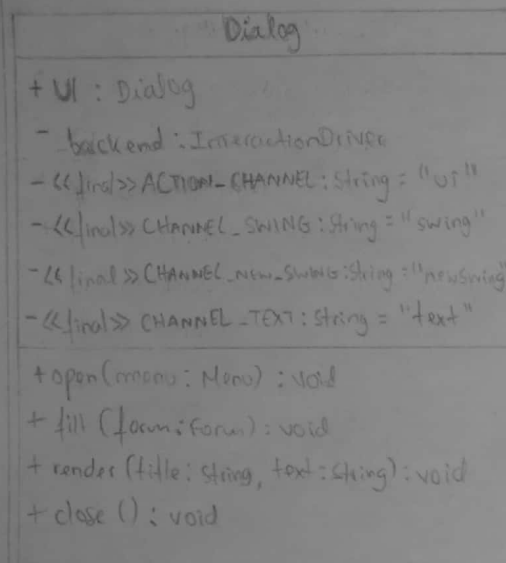 Dialog
+ UI : Dialog
- backend : InteractionDriver
- <<final>> ACTION_CHANNEL : String = "ui"
- <<final>> CHANNEL_SWING : String = "swing"
- <<final>> CHANNEL_NEW_SWING : String = "newSwing"
- <<final>> CHANNEL_TEXT : String = "text"
+ open (menu : Menu) : void
+ fill (form : Form) : void
+ render (title : String, text : String) : void
+ close () : void